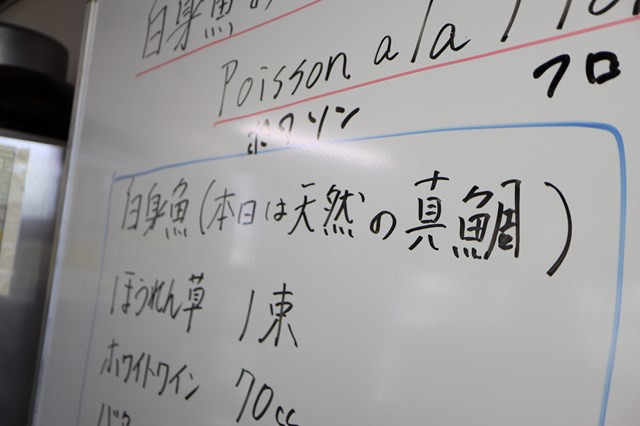 白身魚の
Poisson a la Flor
ポワソン フロ
白身魚(本日は天然の真鯛)
ほうれん草 1束
ホワイトワイン 70cc
バタ